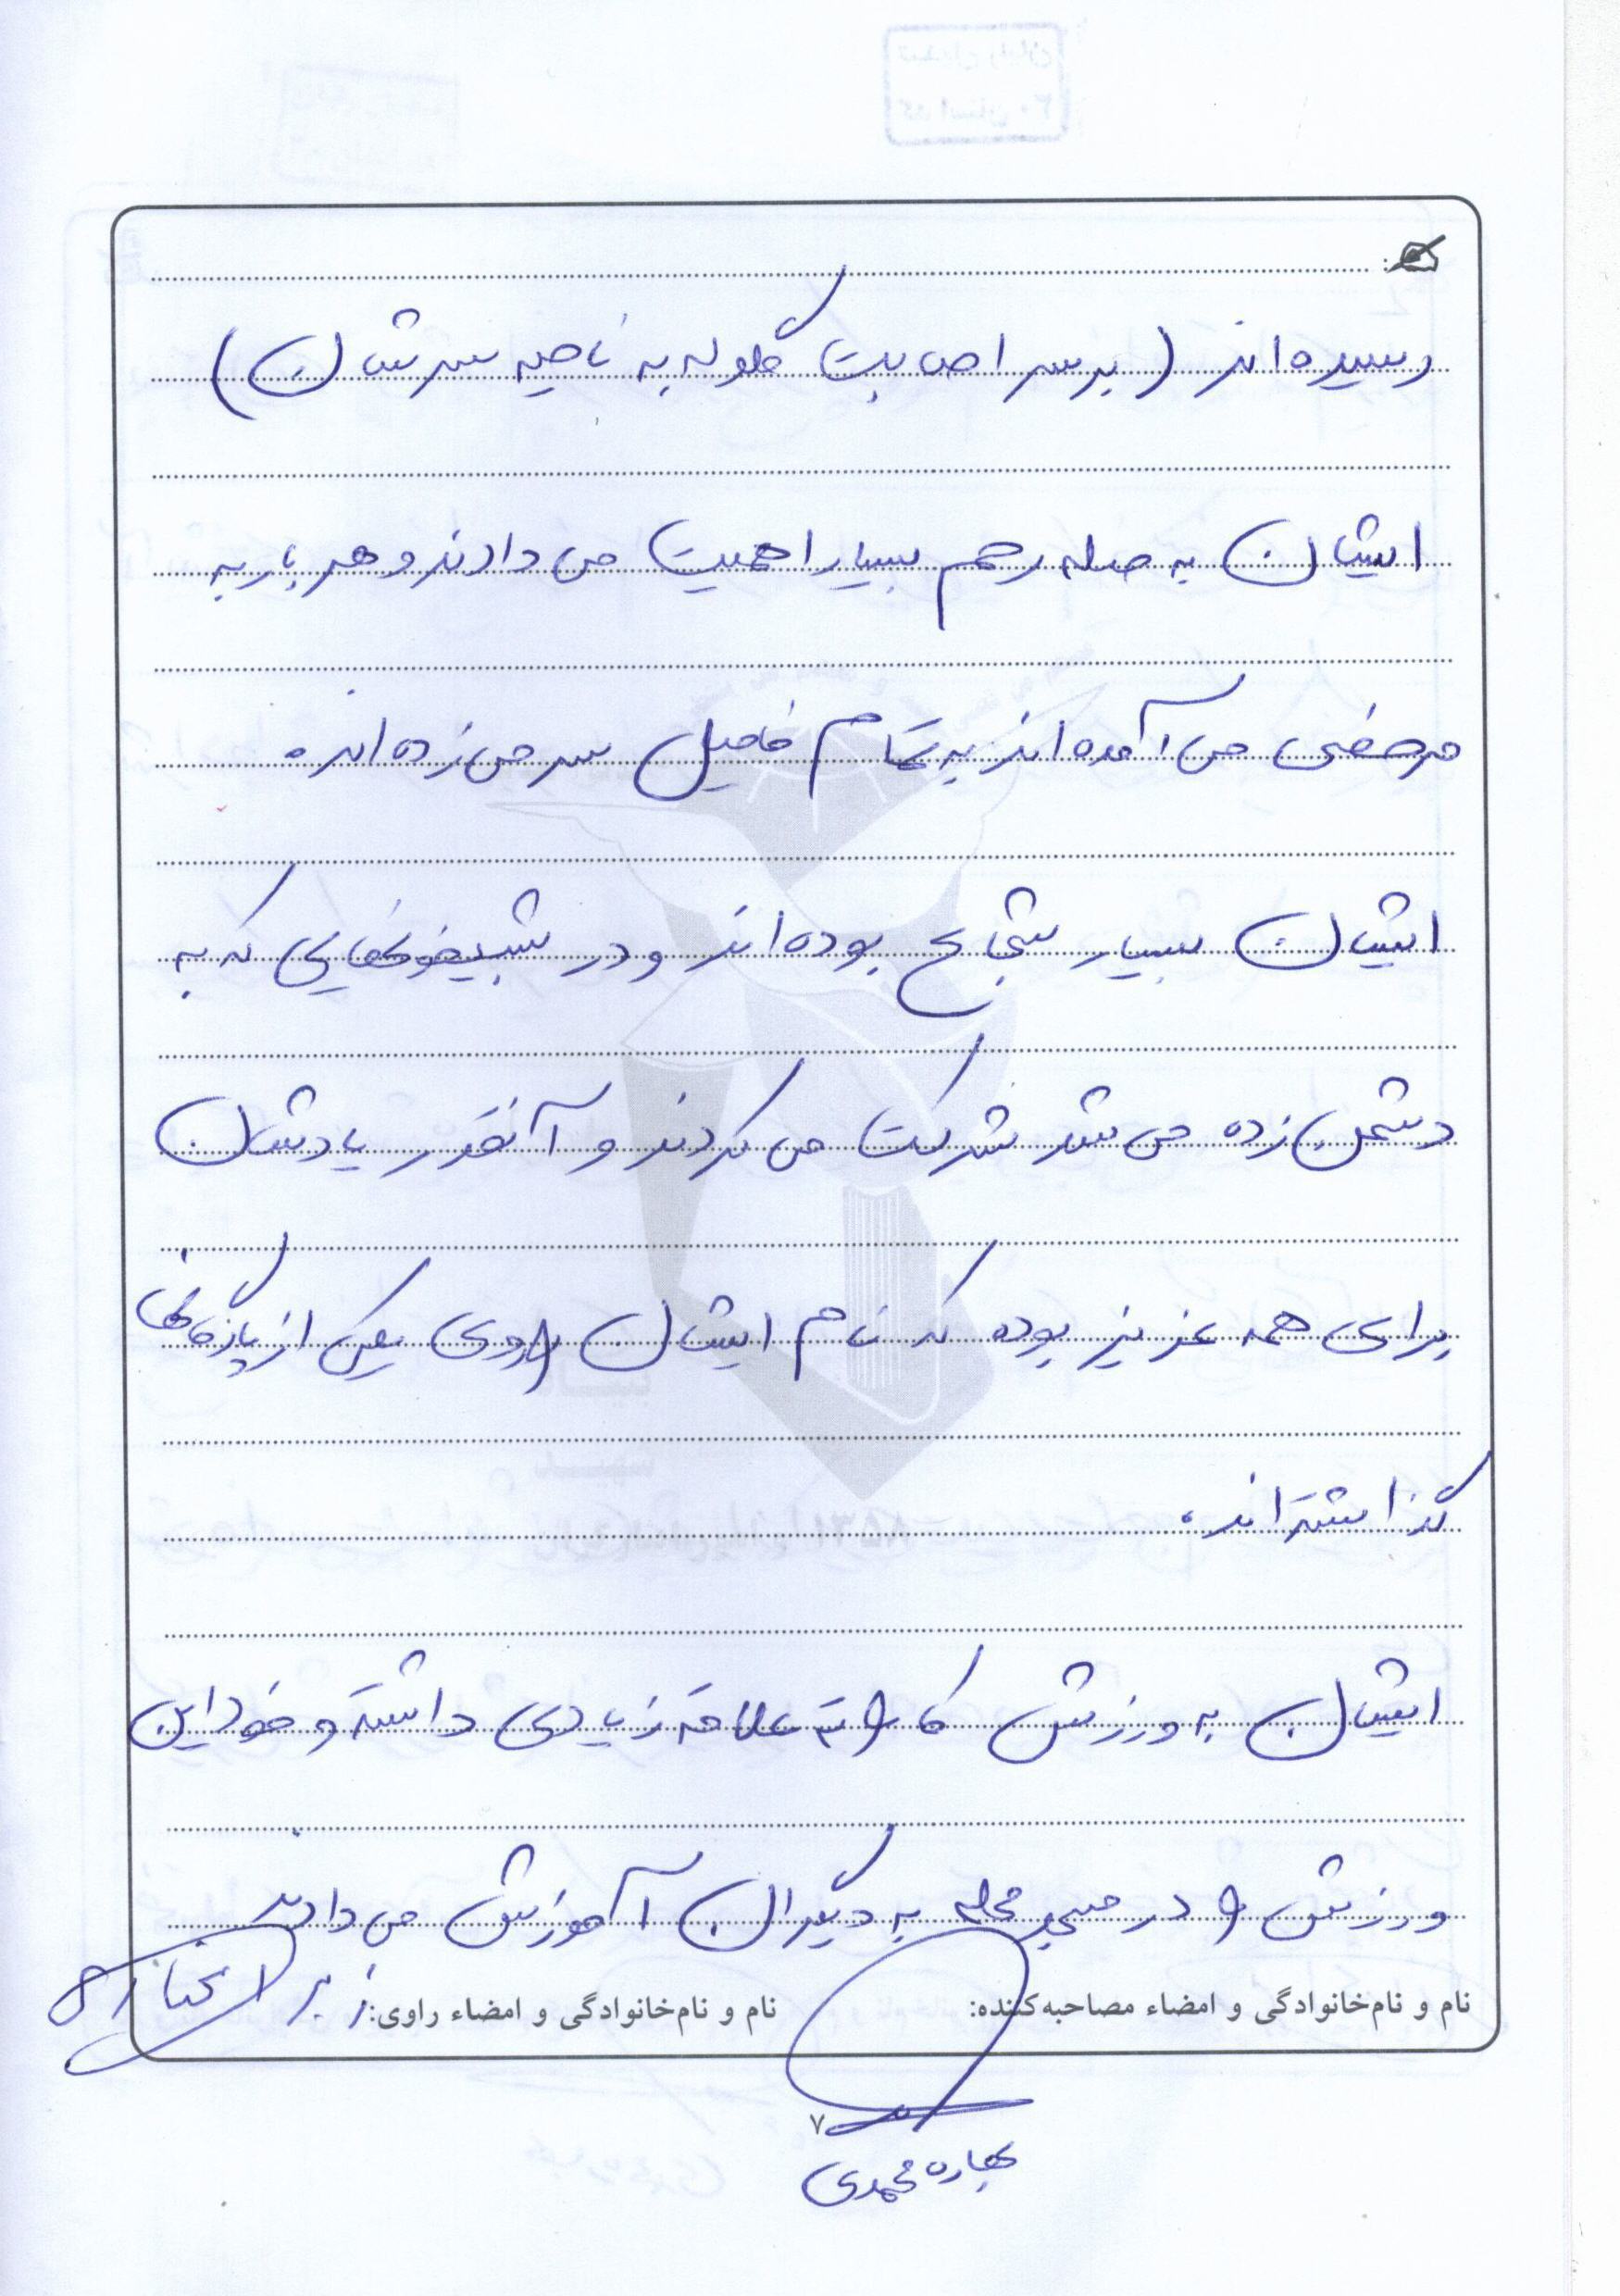 رسیده‌اند (بر سر اصابت گلوله به ناحیه سرشان)
ایشان به صله رحم بسیار اهمیت می دادند و هر بار به
مرخصی می آمده اند به تمام فامیل سر می زده اند.
ایشان بسیار شجاع بوده اند و در شبیخونهایی که به
دشمن زده می شد شرکت می کردند و آنقدر یادشان
برای همه عزیز بوده که نام ایشان را روی یکی از پادگانها
گذاشته اند.
ایشان به ورزش کاراته علاقه زیادی داشته و خود این
ورزش را در مسجد محله به دیگران آموزش می دادند
نام و نام‌خانوادگی و امضاء مصاحبه‌کننده:
نام و نام‌خانوادگی و امضاء راوی:
۷
بهاره محمدی